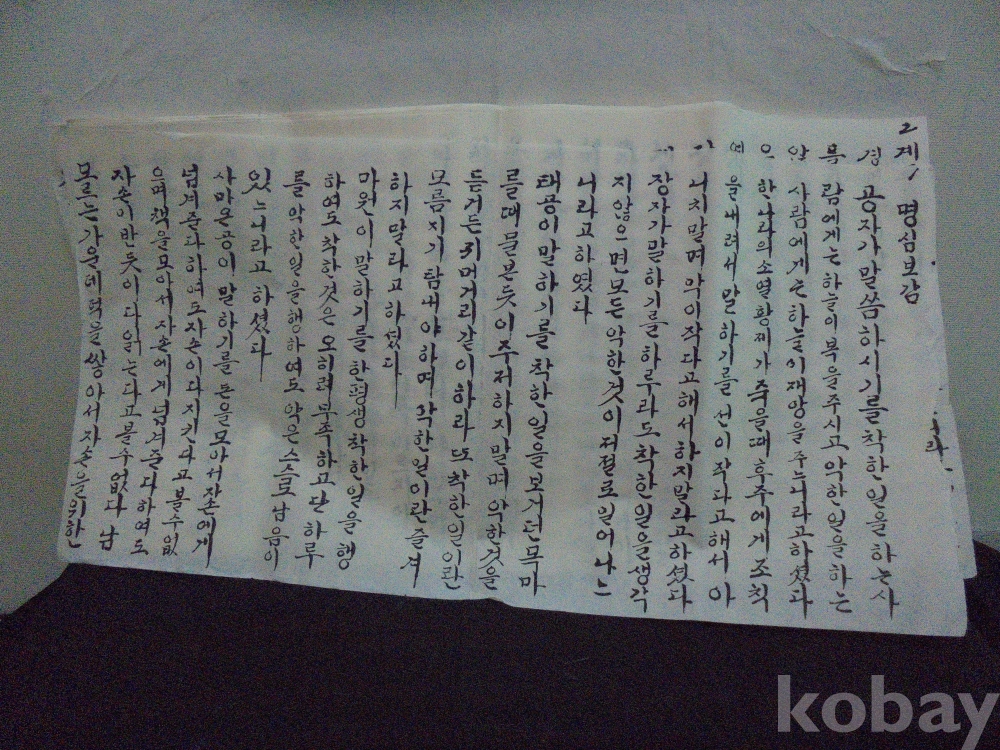 명심보감
공자가 말씀하시기를 착한일을 하는사
람에게는 하늘이 복을 주시고 악한일을 하는
사람에게는 하늘이 재앙을 주느니라고하셨다
한나라의 소열황제가 죽을때 후주에게 조칙
을 내려서 말하기를 선이 작다고해서 아
니치말며 악이작다고해서 하지말라고하셨다
장자가말하기를 하루라도 착한일을생각
지않으면 모든 악한것이 저절로 일어나는
니라고 하였다
태공이 말하기를 착한일을 보거던 목마
를때 물본듯이 주저하지말며 악한것을
듣거든 귀머거리같이하라 또 착한일이란
모름지기 탐내야하며 악한일이란 즐겨
하지말라고 하셨다
마원이 말하기를 한평생 착한일을 행
하여도 착한것은 오히려 부족하고 단 하루
를 악한일을 행하여도 악은 스스로 남음이
있느니라고 하셨다
사마온공이 말하기를 돈을모아서 자손에게
넘겨준다하여도 자손이다지킨다고 볼수없
으며 책을모아서 자손에게 넘겨준다 하여도
자손이 반듯이 다 읽는다고 볼수 없다 남
모르는가운데 덕을 쌓아서 자손을위한
kobay